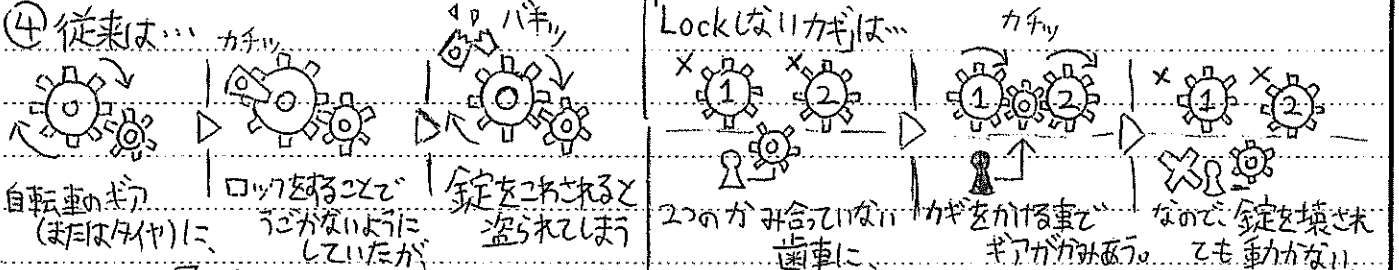 ④ 従来は…
カチッ
バキッ
自転車のギア
(またはタイヤ)に、
ロックをすることで
うごかないように
していたが、
錠をこわされると
盗られてしまう
「Lockしないカギ」は…
カチッ
1
2
1
2
1
2
2つのかみ合っていない
歯車に、
カギをかける事で
ギアがかみあう。
なので、錠を壊され
ても動かない